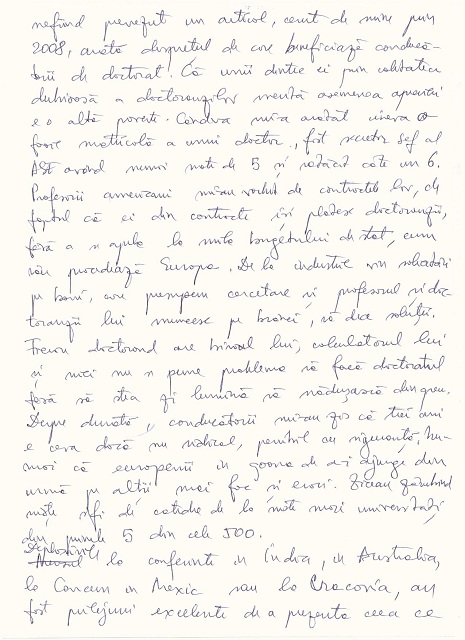 nefiind prevăzut un articol, cerut de mine prin
2008, arată disprețul de care beneficiază conducă-
torii de doctorat. Că unii dintre ei prin calitatea
dubioasă a doctoranzilor merită asemenea aprecieri
e o altă poveste. Cândva mi-a arătat cineva o
foaie matricolă a unui doctor, fost secretar șef al
ASE având numai note de 5 și rătăcit câte un 6.
Profesorii americani mi-au vorbit de contractele lor, de
faptul că ei din contracte își plătesc doctoranzii,
fără a se apela la mila bugetului de stat, cum
sau procedează Europa. De la industrie vin solicitări
pe bani, care presupun cercetare și profesorul și doc-
toranzii lui muncesc pe brânci, să dea soluții.
Fiecare doctorand are biroul lui, calculatorul lui
și nici nu se pune problema să facă doctoratul
fără să stea zi lumină să nădușească din greu.
Despre durată, conducătorii mi-au zis că trei ani
e ceva dacă nu ridicol, penibil cu siguranță, nu-
mai că europenii în goana de a-i ajunge din
urmă pe alții mai fac și erori. Ziceau zâmbind
niște șefi de catedre de la niște mari universități
din primele 5 din cele 500.
Deplasările la conferințe în India, în Australia,
la Cancun în Mexic sau la Cracovia, au
fost prilejuri excelente de a prezenta ceea ce